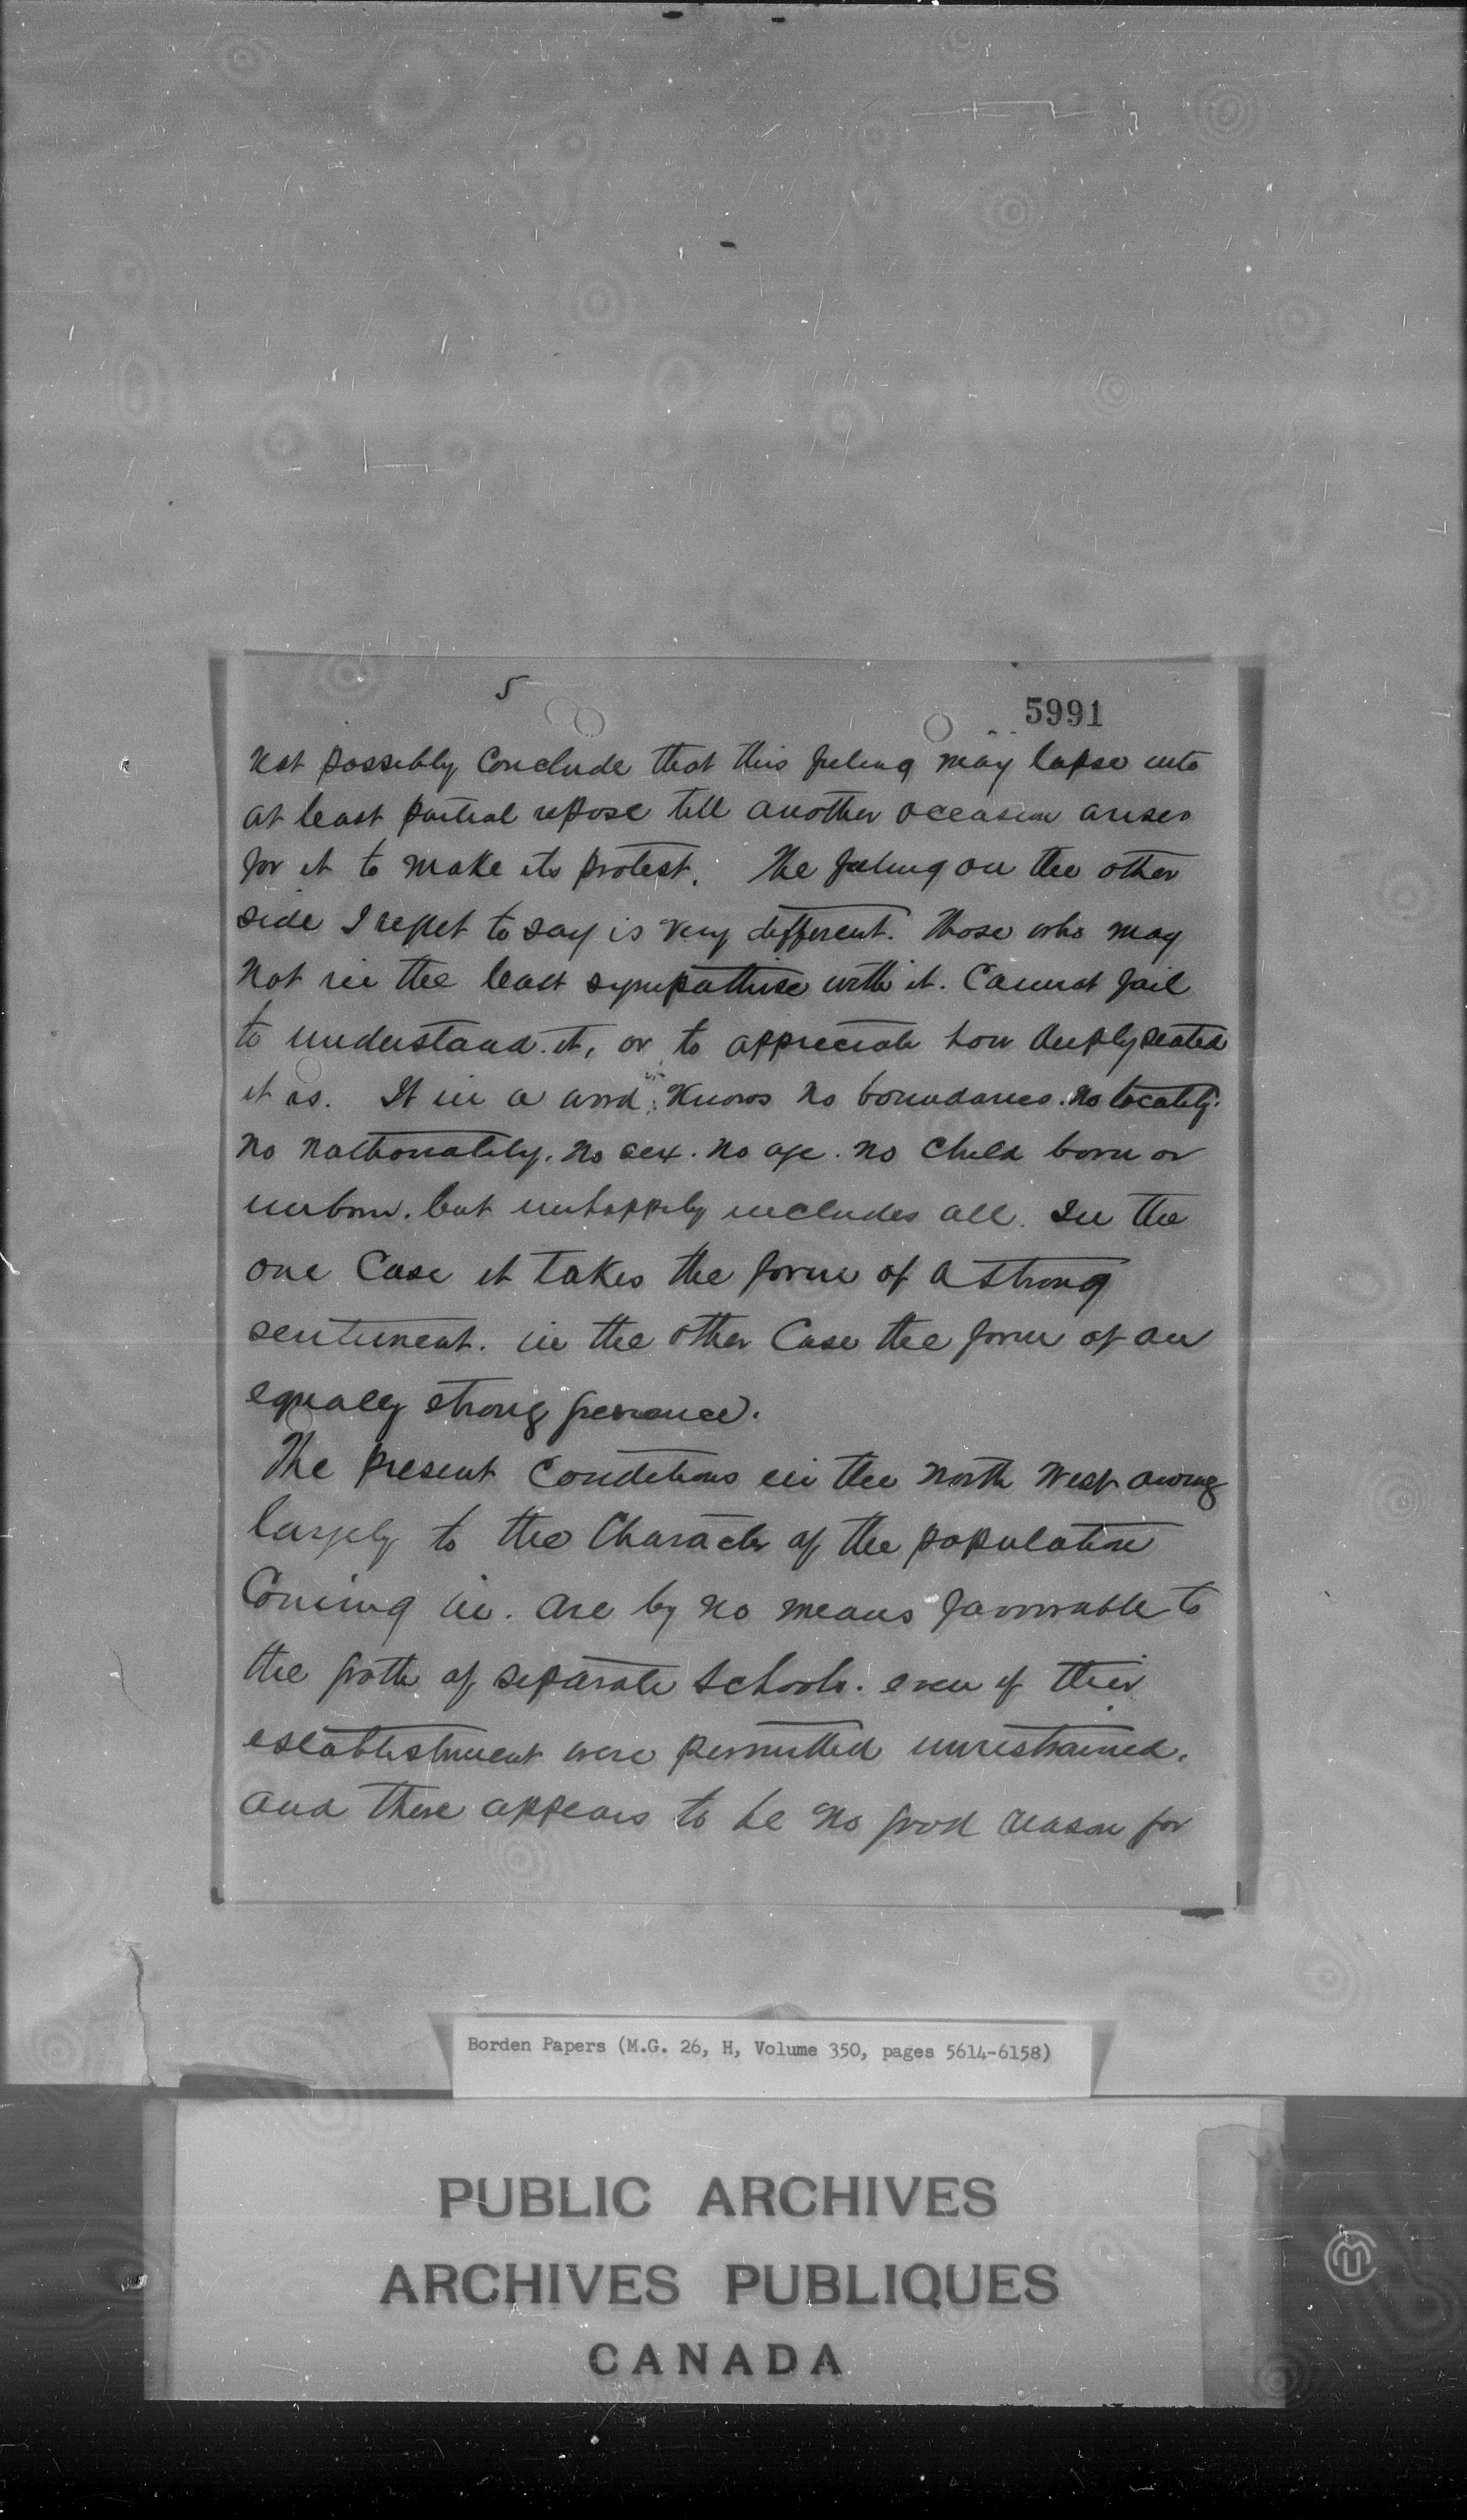 5
5991
not possibly Conclude that this feeling may lapse into
at least partial repose till another occasion arises
for it to make its protest. The feeling on the other
side I regret to say is very different. Those who may
not in the least sympathise with it. Cannot fail
to understand it, or to appreciate how deeply seated
it is. It in a word knows no boundaries. no locality.
no nationality. no sex. no age. no child born or
unborn. but unhappily includes all. In the
one Case it takes the form of a strong
sentiment. in the other Case the form of an
equally strong grievance.
The present Conditions in the North West owing
largely to the Character of the population
Coming in. are by no means favourable to
the groth of separate schools. even if their
establishment were permitted unrestrained.
and there appears to be no good reason for
Borden Papers (M.G. 26, H, Volume 350, pages 5614-6158)
PUBLIC ARCHIVES
ARCHIVES PUBLIQUES
CANADA